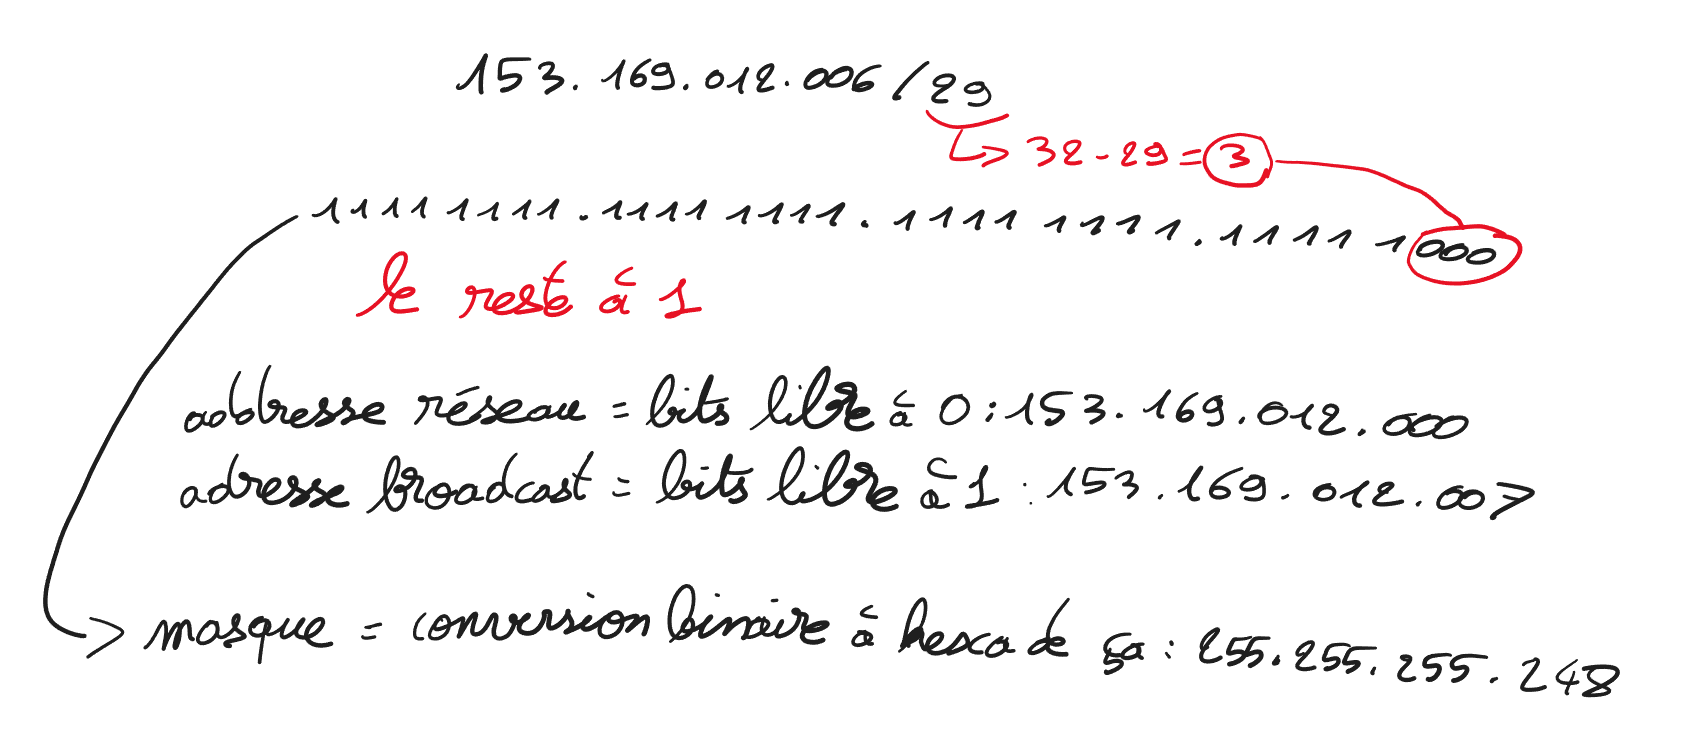 153.169.012.006/29
32-29=3
1111 1111.1111 1111.1111 1111.1111 1000
le reste à 1
addresse réseau = bits libre à 0:153.169.012.000
adresse broadcast = bits libre à 1:153.169.012.007
masque = conversion binaire à hesca de ça : 255.255.255.248